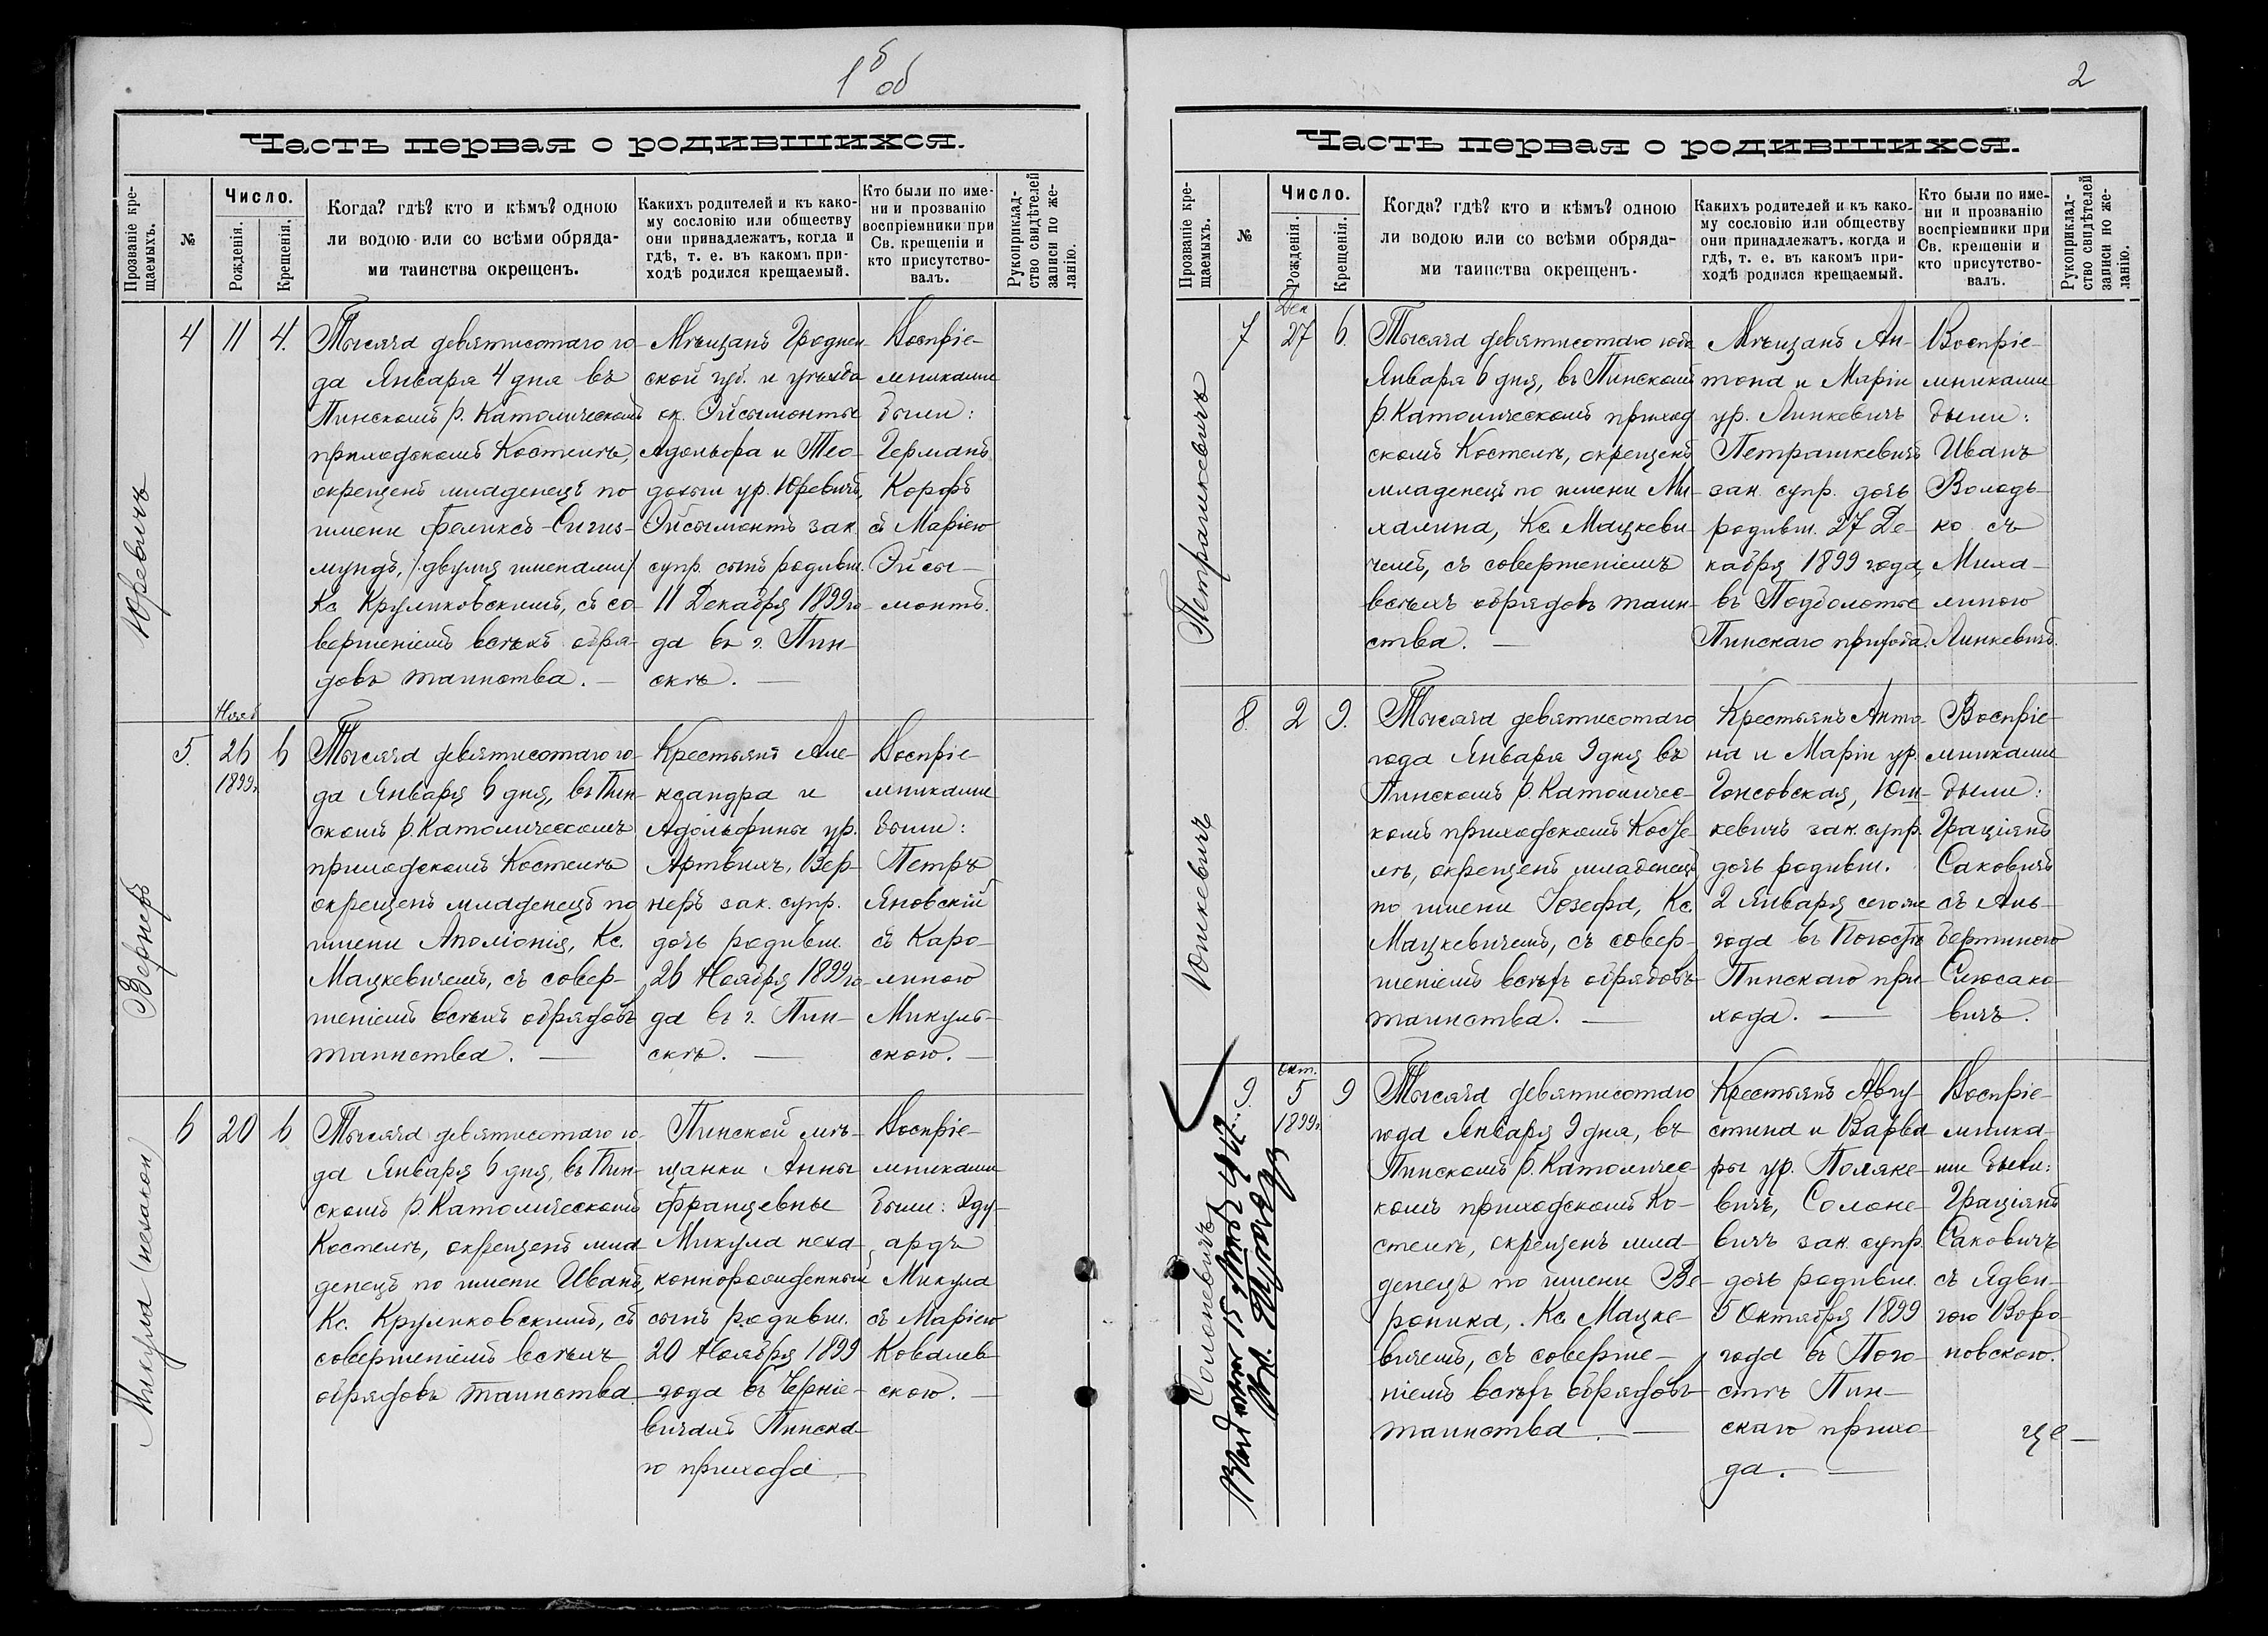 1б об
Часть первая о родившихся.
Прозваніе кре-
щаемыхъ.
№
Число.
Рожденія.
Крещенія.
Когда? гдѣ? кто и кѣмъ? одною
ли водою или со всѣми обряда-
ми таинства окрещенъ.
Какихъ родителей и къ како-
му сословію или обществу
они принадлежатъ, когда и
гдѣ, т. е. въ какомъ при-
ходѣ родился крещаемый.
Кто были по име-
ни и прозванію
воспріемники при
Св. крещеніи и
кто присутство-
валъ.
Рукоприклад-
ство свидѣтелей
записи по же-
ланію.
Юревичъ
4
11
4.
Тысяча девятисотаго го-
да Января 4 дня въ
Пинскомъ р. Католическомъ
приходскомъ Костелѣ,
окрещенъ младенецъ по
имени Феликсъ-Сигиз-
мундъ, /двумя именами/
Кс. Круликовскимъ, съ со-
вершеніемъ всѣхъ обря-
довъ таинства. —
Мѣщанъ Гроднен-
ской губ. и уѣзда
ок. Эйсымонты
Адольфа и Тео-
дозыи ур. Юревичъ,
Эйсымонтъ зак.
супр. сынъ родивш.
11 Декабря 1899 го-
да въ г. Пин-
скѣ. —
Воспріе-
мниками
были:
Германъ
Корфъ
съ Маріею
Эйсы-
монтъ.
Вернеръ
5.
Нояб
26
1899г.
6
Тысяча девятисотаго го-
да Января 6 дня, въ Пин-
скомъ р. Католическомъ
приходскомъ Костелѣ
окрещенъ младенецъ по
имени Аполонія, Кс.
Мацкевичемъ, съ совер-
шеніемъ всѣхъ обрядовъ
таинства. —
Крестьянъ Але-
ксандра и
Адольфины ур.
Артвихъ, Вер-
неръ зак. супр.
дочь родивш.
26 Ноября 1899 го-
да въ г. Пин-
скѣ. —
Воспріе-
мниками
были:
Петръ
Яновскій
съ Каро-
линою
Микуль-
скою. —
Микула (незакон)
6
20
6
Тысяча девятисотаго го-
да Января 6 дня, въ Пин-
скомъ р. Католическомъ
Костелѣ, окрещенъ мла-
денецъ по имени Иванъ,
Кс. Круликовскимъ, съ
совершеніемъ всѣхъ
обрядовъ таинства.
Пинской мѣ-
щанки Анны
Францевны
Микула неза-
коннорожденный
сынъ родивш.
20 Ноября 1899
года въ Черніе-
вичахъ Пинска-
го прихода —
Воспріе-
мниками
были: Эду-
ардъ
Микула
съ Маріею
Ковалев-
скою. —
2
Часть первая о родившихся.
Прозваніе кре-
щаемыхъ.
№
Число.
Рожденія.
Крещенія.
Когда? гдѣ? кто и кѣмъ? одною
ли водою или со всѣми обряда-
ми таинства окрещенъ.
Какихъ родителей и къ како-
му сословію или обществу
они принадлежатъ. когда и
гдѣ, т. е. въ какомъ при-
ходѣ родился крещаемый.
Кто были по име-
ни и прозванію
воспріемники при
Св. крещеніи и
кто присутство-
валъ.
Рукоприклад-
ство свидѣтелей
записи по же-
ланію.
Петрашкевичъ
7
Дек
27
6.
Тысяча девятисотаго года
Января 6 дня, въ Пинскомъ
р. Католическомъ приход-
скомъ Костелѣ, окрещенъ
младенецъ по имени Ми-
халина, Кс. Мацкеви-
чемъ, съ совершеніемъ
всѣхъ обрядовъ таин-
ства. —
Мѣщанъ Ан-
тона и Маріи
ур. Линкевичъ
Петрашкевичъ
зак. супр. дочь
родивш. 27 Де-
кабря 1899 года,
въ Подболотье
Пинскаго прихода.
Воспріе-
мниками
были:
Иванъ
Володь-
ко съ
Миха-
линою
Линкевичъ.
Юшкевичъ
8.
2
9.
Тысяча девятисотаго
года Января 9 дня въ
Пинскомъ р. Католичес-
комъ приходскомъ Косте-
лѣ, окрещенъ младенецъ
по имени Іозефа, Кс.
Мацкевичемъ, съ совер-
шеніемъ всѣхъ обрядовъ
таинства. —
Крестьянъ Анто-
на и Маріи ур.
Гонсовская, Юш-
кевичъ зак. супр.
дочь родивш.
2 Января сего же
года въ Погостѣ
Пинскаго при-
хода. —
Воспріе-
мниками
были:
Граціянъ
Саковичъ
съ Аль-
бертиною
Слюсако-
вичъ.
Солоневичъ
9.
Окт.
5
1899г.
9
Тысяча девятисотаго
года Января 9 дня, въ
Пинскомъ р. Католичес-
комъ приходскомъ Ко-
стелѣ, окрещенъ мла-
денецъ по имени Ве-
роника, Кс. Мацке-
вичемъ, съ соверше-
ніемъ всѣхъ обрядовъ
таинства. —
Крестьянъ Авгу-
стина и Варва-
ры ур. Поляке-
вичъ, Солоне-
вичъ зак. супр.
дочь родивш.
5 Октября 1899
года въ Пого-
стѣ Пин-
скаго прихо-
да. —
Воспріе-
мника-
ми были:
Граціянъ
Саковичъ
съ Ядви-
гою Воро-
новскою.